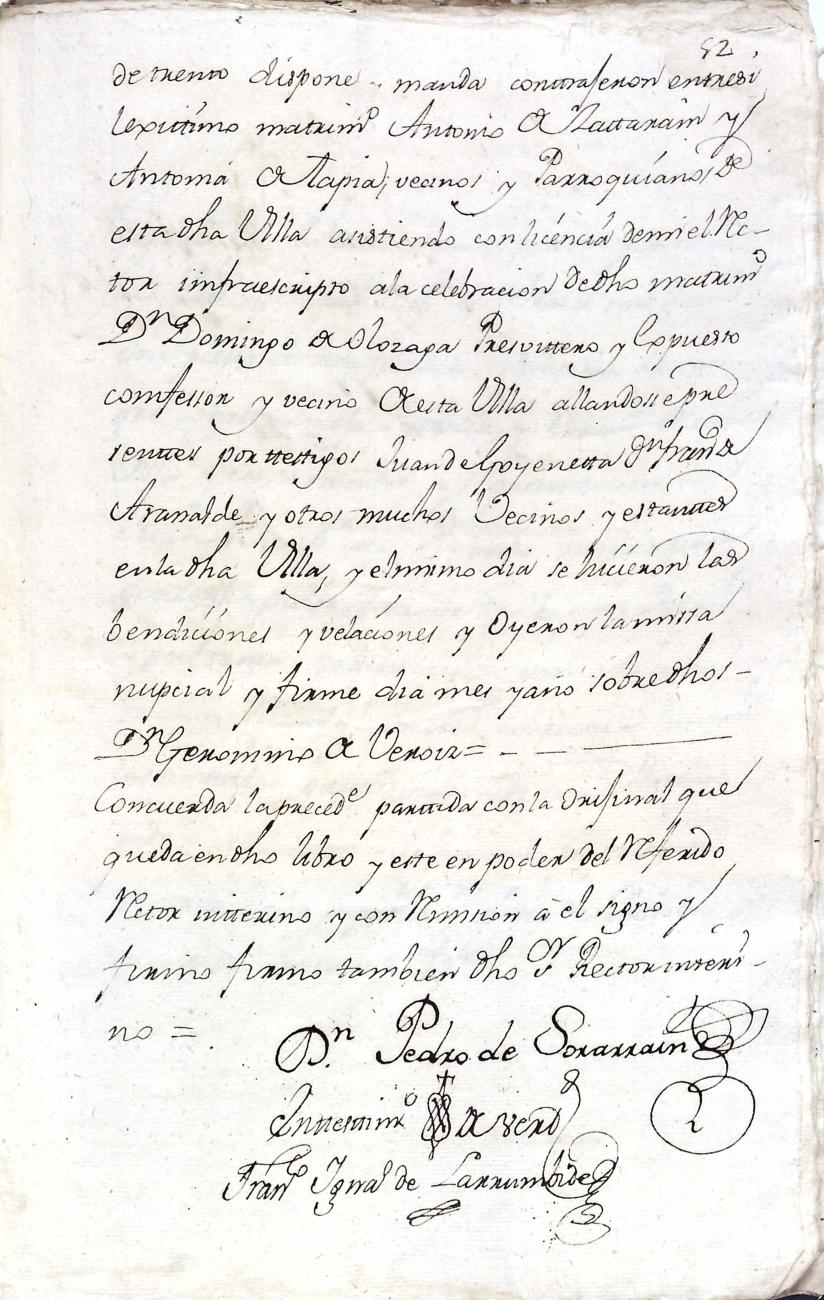 52
de trento dispone y manda contrajeron entresi
lexittimo matrimº Antonio de Zattarain y
Antonia de Tapia, vecinos y Parroquianos de
esta dha Villa asistiendo con licencia demi el Rec-
tor imfraescripto ala celebracion de dho matrimº
Dn Domingo de Olozaga Presvittero y Expuesto
comfessor y vecino de esta Villa allandosse pre
senttes por ttestigos Juan de Goyenetta Dn Franco de
Aranalde y otros muchos Vecinos y estanttes
en la dha Villa, y el mimo dia se hicieron las
bendiciones y velaciones y Oyeron la missa
nupcial y firme dia mes y año sobre dhos -
Dn Geronimo de Veroiz = - - —
Concuerda la precede partida con la Orijinal que
queda en dho libro y este en poder del Referido
Rector intterino y con Remision a el signo y
firmo firmo tambien dho Sr Rector interi-
no =
Dn. Pedro de Sorarrain
Inttestimº de verd
Franº Ignaº de Larrumbide